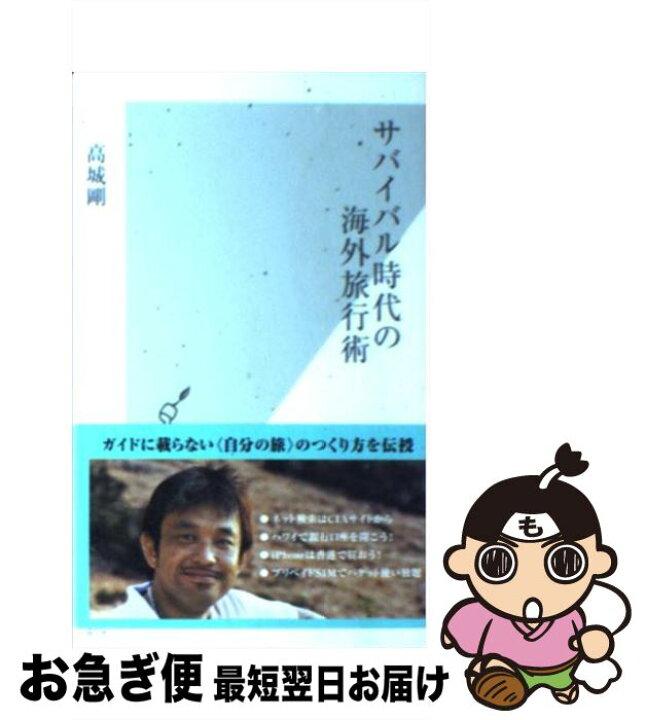 サバイバル時代の
海外旅行術
高城剛
ガイドに載らない〈自分の旅〉のつくり方を伝授
● ネット検索はCIAサイトから
● ハワイで銀行口座を開こう!
● iPhoneは香港で買おう!
● プリペイドSIMでパケット使い放題
も
お急ぎ便 最短翌日お届け